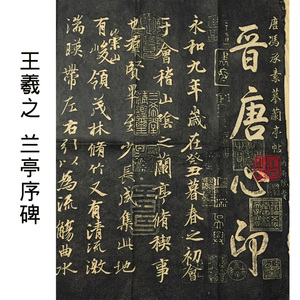 王羲之 兰亭序碑
唐馮承素摹蘭亭帖
晉唐心印
永和九年歲在癸丑暮春之初會
于會稽山陰之蘭亭脩稧事
也群賢畢至少長咸集此地
有崇山峻領茂林脩竹又有清流激
湍暎帶左右引以為流觴曲水